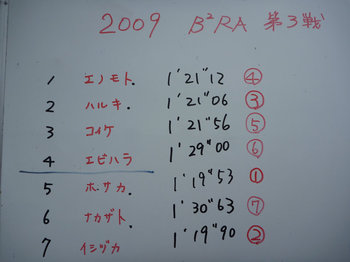 2009 B²RA 第3戦
1 エノモト. 1'21"12 ④
2 ハルキ. 1'21"06 ③
3 コイケ 1'21"56 ⑤
4 エビハラ 1'29"00 ⑥
5 ホサカ. 1'19"53 ①
6 ナカザト. 1'30"63 ⑦
7 イシヅカ 1'19"90 ②